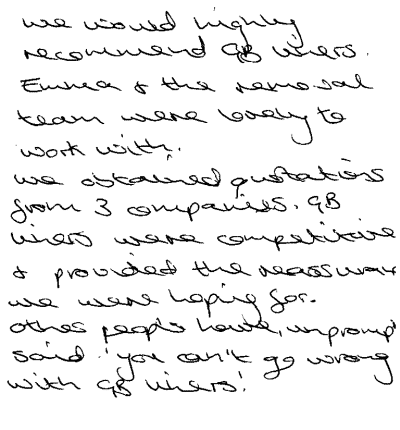 we would highly
recommend GB Liners.
Emma & the removal
team were lovely to
work with.
we obtained quotations
from 3 companies. GB
Liners were competitive
& provided the reassuran
we were hoping for.
other people have, unpromp
said 'you can't go wrong
with GB Liners'.